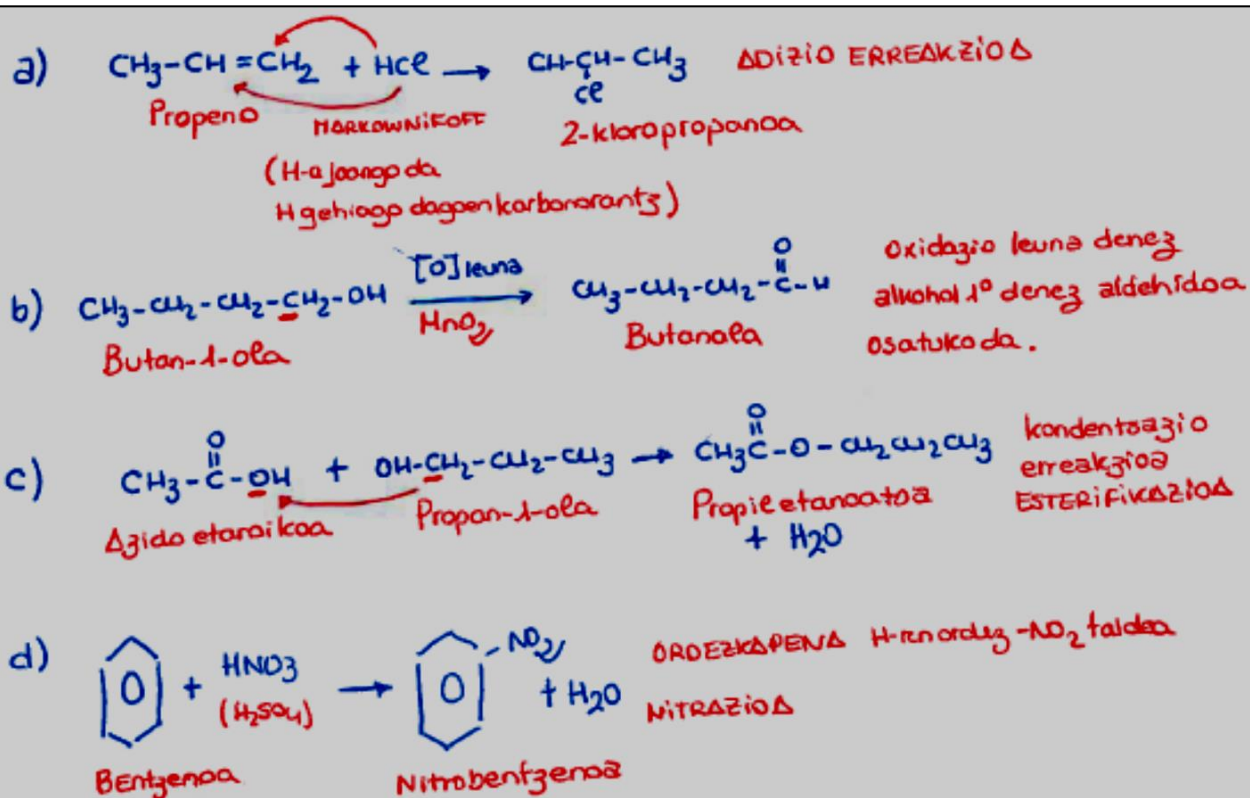 a) CH₃-CH=CH₂ + HCl → CH-CH-CH₃ ADIZIO ERREAKZIOA
Cl
Propeno MARKOWNIKOFF 2-kloropropanoa
(H-a joango da
H gehiago dagoen karbonorantz)
b) CH₃-CH₂-CH₂-CH₂-OH [O] leuna → CH₃-CH₂-CH₂-C-H Oxidazio leuna denez
MnO₂ O alkohol 1º denez aldehidoa
Butan-1-ola Butanala osatuko da.
c) CH₃-C-OH + OH-CH₂-CH₂-CH₃ → CH₃C-O-CH₂CH₂CH₃ kondentsazio
O O erreakzioa
Azido etanoikoa Propan-1-ola Propil etanoatoa ESTERIFIKAZIOA
+ H₂O
d) O + HNO₃ → O -NO₂ + H₂O ORDEZKAPENA H-ren ordez -NO₂ taldea
(H₂SO₄) NITRAZIOA
Bentzenoa Nitrobentzenoa